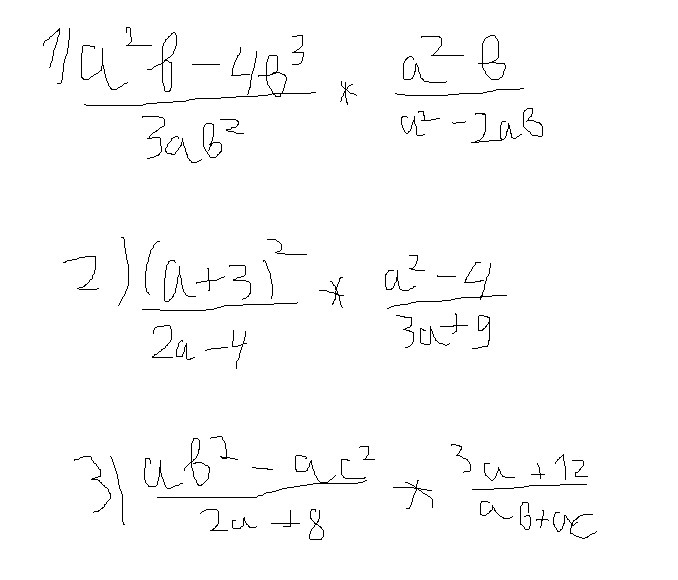 1) (a²b - 4b³)/(3ab²) * (a² b)/(a² - 2ab)
2) (a+3)²/(2a - 4) * (a² - 4)/(3a + 9)
3) (ab² - ac²)/(2a + 8) * (3a + 12)/(ab + ac)